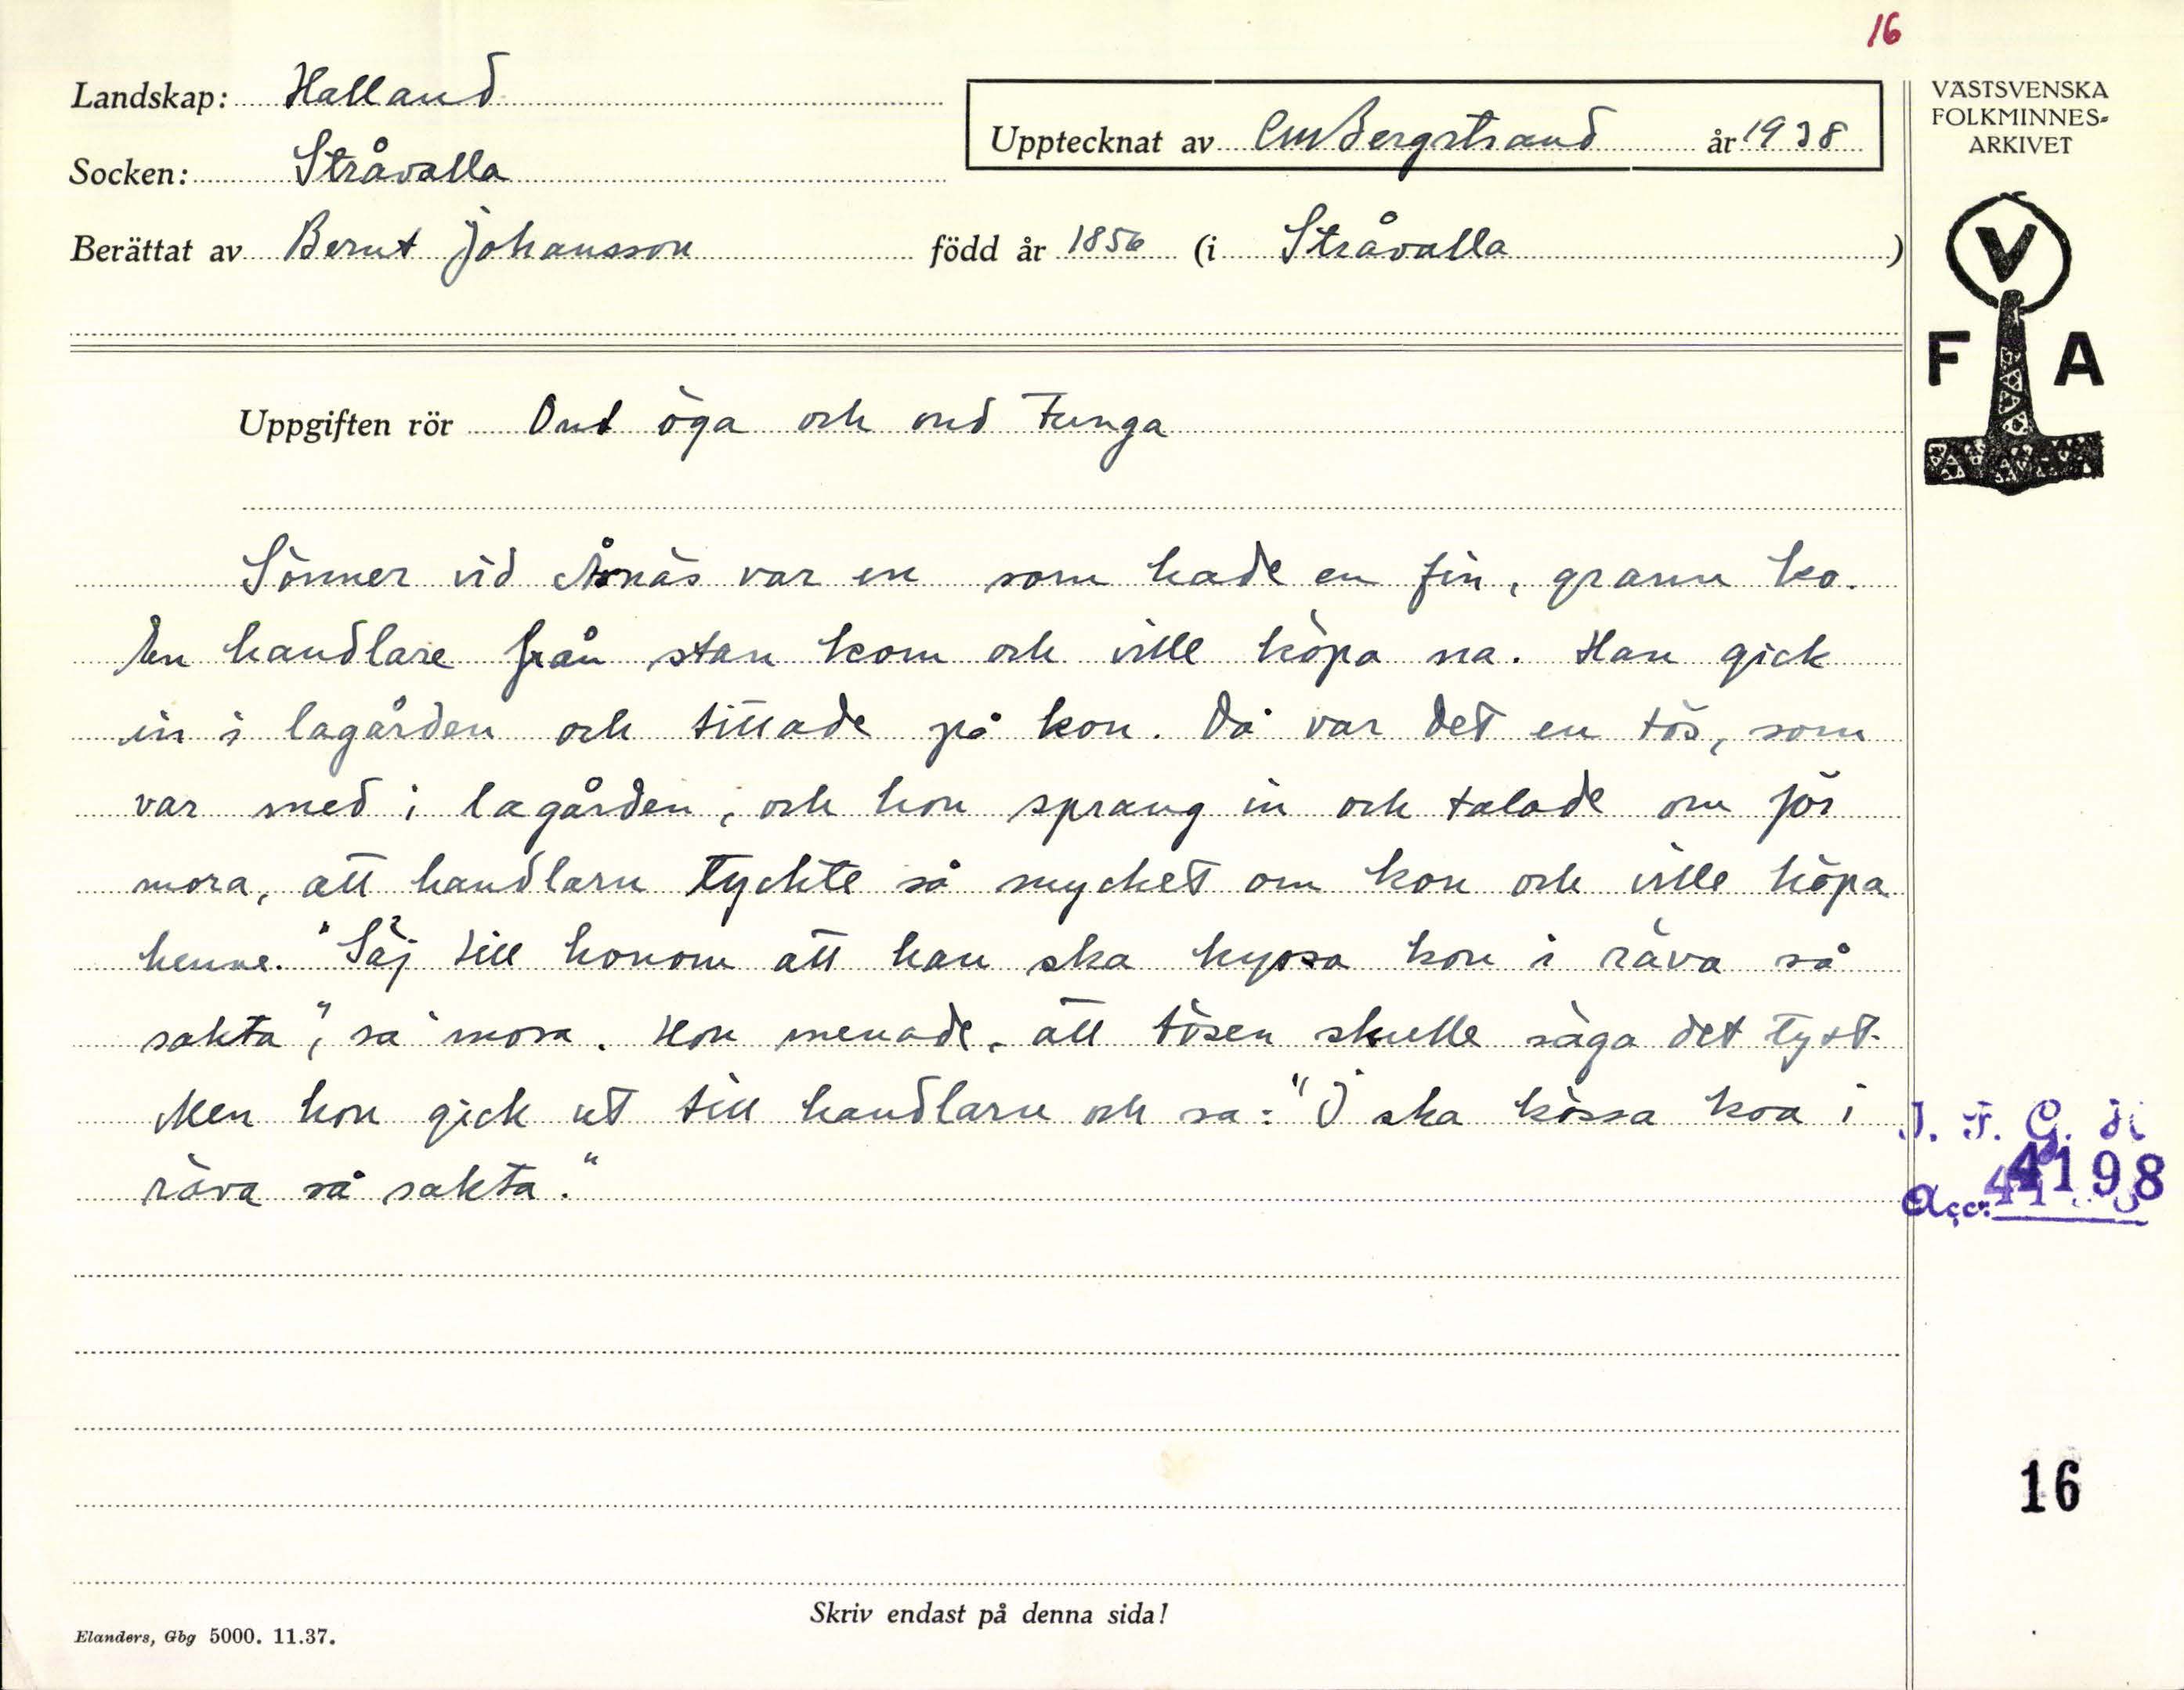 16
Landskap: Halland
Upptecknat av CMBergstrand år 1938
Socken: Stråvalla
Berättat av Bernt Johansson född år 1856 (i Stråvalla)
VÄSTSVENSKA
FOLKMINNES-
ARKIVET
V
F A
Uppgiften rör Ont öga och ond tunga
Sönner vid Åsnäs var en som hade en fin, grann ko.
En handlare från stan kom och ville köpa na. Han gick
in i lagården och tittade på kon. Då var det en tös, som
var med i lagården, och hon sprang in och talade om för
mora, att handlarn tyckte så mycket om kon och ville köpa
henne. "Säj till honom att han ska kyssa kon i räva så
sakta", sa mora. Hon menade, att tösen skulle säga det tyst.
Men hon gick ut till handlarn och sa: "I ska kössa koa i
räva så sakta."
I. F. G. H
Acc: 4198
16
Skriv endast på denna sida!
Elanders, Gbg 5000. 11.37.